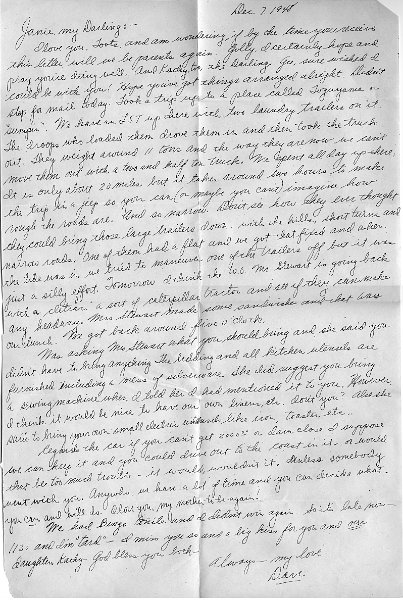 Dec. 7 1948
Janie my Darling: -
I love you, Toots, and am wondering if by the time you receive
this letter will we be parents again. Golly I certainly hope and
pray you're doing well. And Kathy too, the Darling. Gee, sure wished I
could be with you. Hope you've got things arranged alright. Didn't
stop for mail today. Took a trip up to a place called
We had an LST up there with two laundry trailers on it.
The troops who loaded them drove them in and then took the truck
out. They weight around 11 tons and the way they are now we can't
move them out with a two and half ton truck. We spent all day up there.
It is only about 20 miles but it takes around two hours to make
the trip in a jeep so you can (or maybe you cant) imagine how
rough the roads are. And so narrow. Don't see how they ever thought
they could bring those large trailers down with the hills, short turns and
narrow roads. One of them had a flat and we got that fixed and after
the tike was on we tried to maneuver one of the trailers off but it was
just a silly effort. Tomorrow I think the Mr Stewart is going back
with a a sort of caterpillar tractor and see if they can make
any headway. Mrs Stewart made some sandwiches and that was
our lunch. We got back around five o'clock.
Was asking Mrs Stewart what you should bring and she said you
didn't have to bring anything. The bedding and all kitchen utensils are
furnished including a mess of silverware. She did suggest you bring
a sewing machine when I told her I had mentioned it to you. However
I think it would be nice to have our own linens, etc. don't you? Also she
said to bring your own small electric utensils like iron, toaster, etc.
Regards the car if you can't get or close I suppose
we can keep it and you could drive out to the coast in it or would
that be too much trouble - it would, wouldn't it. Unless somebody
went with you. Anyway we have a lot of time and you can decide what
you can and will do. Love you, my mother to be again!
We had Bingo tonite and I didn't win again. So it's late now -
11:15 and I'm "tard" - I miss you so and a big kiss for you and our
daughter Kathy. God bless you both.
Always - my love
Dave.